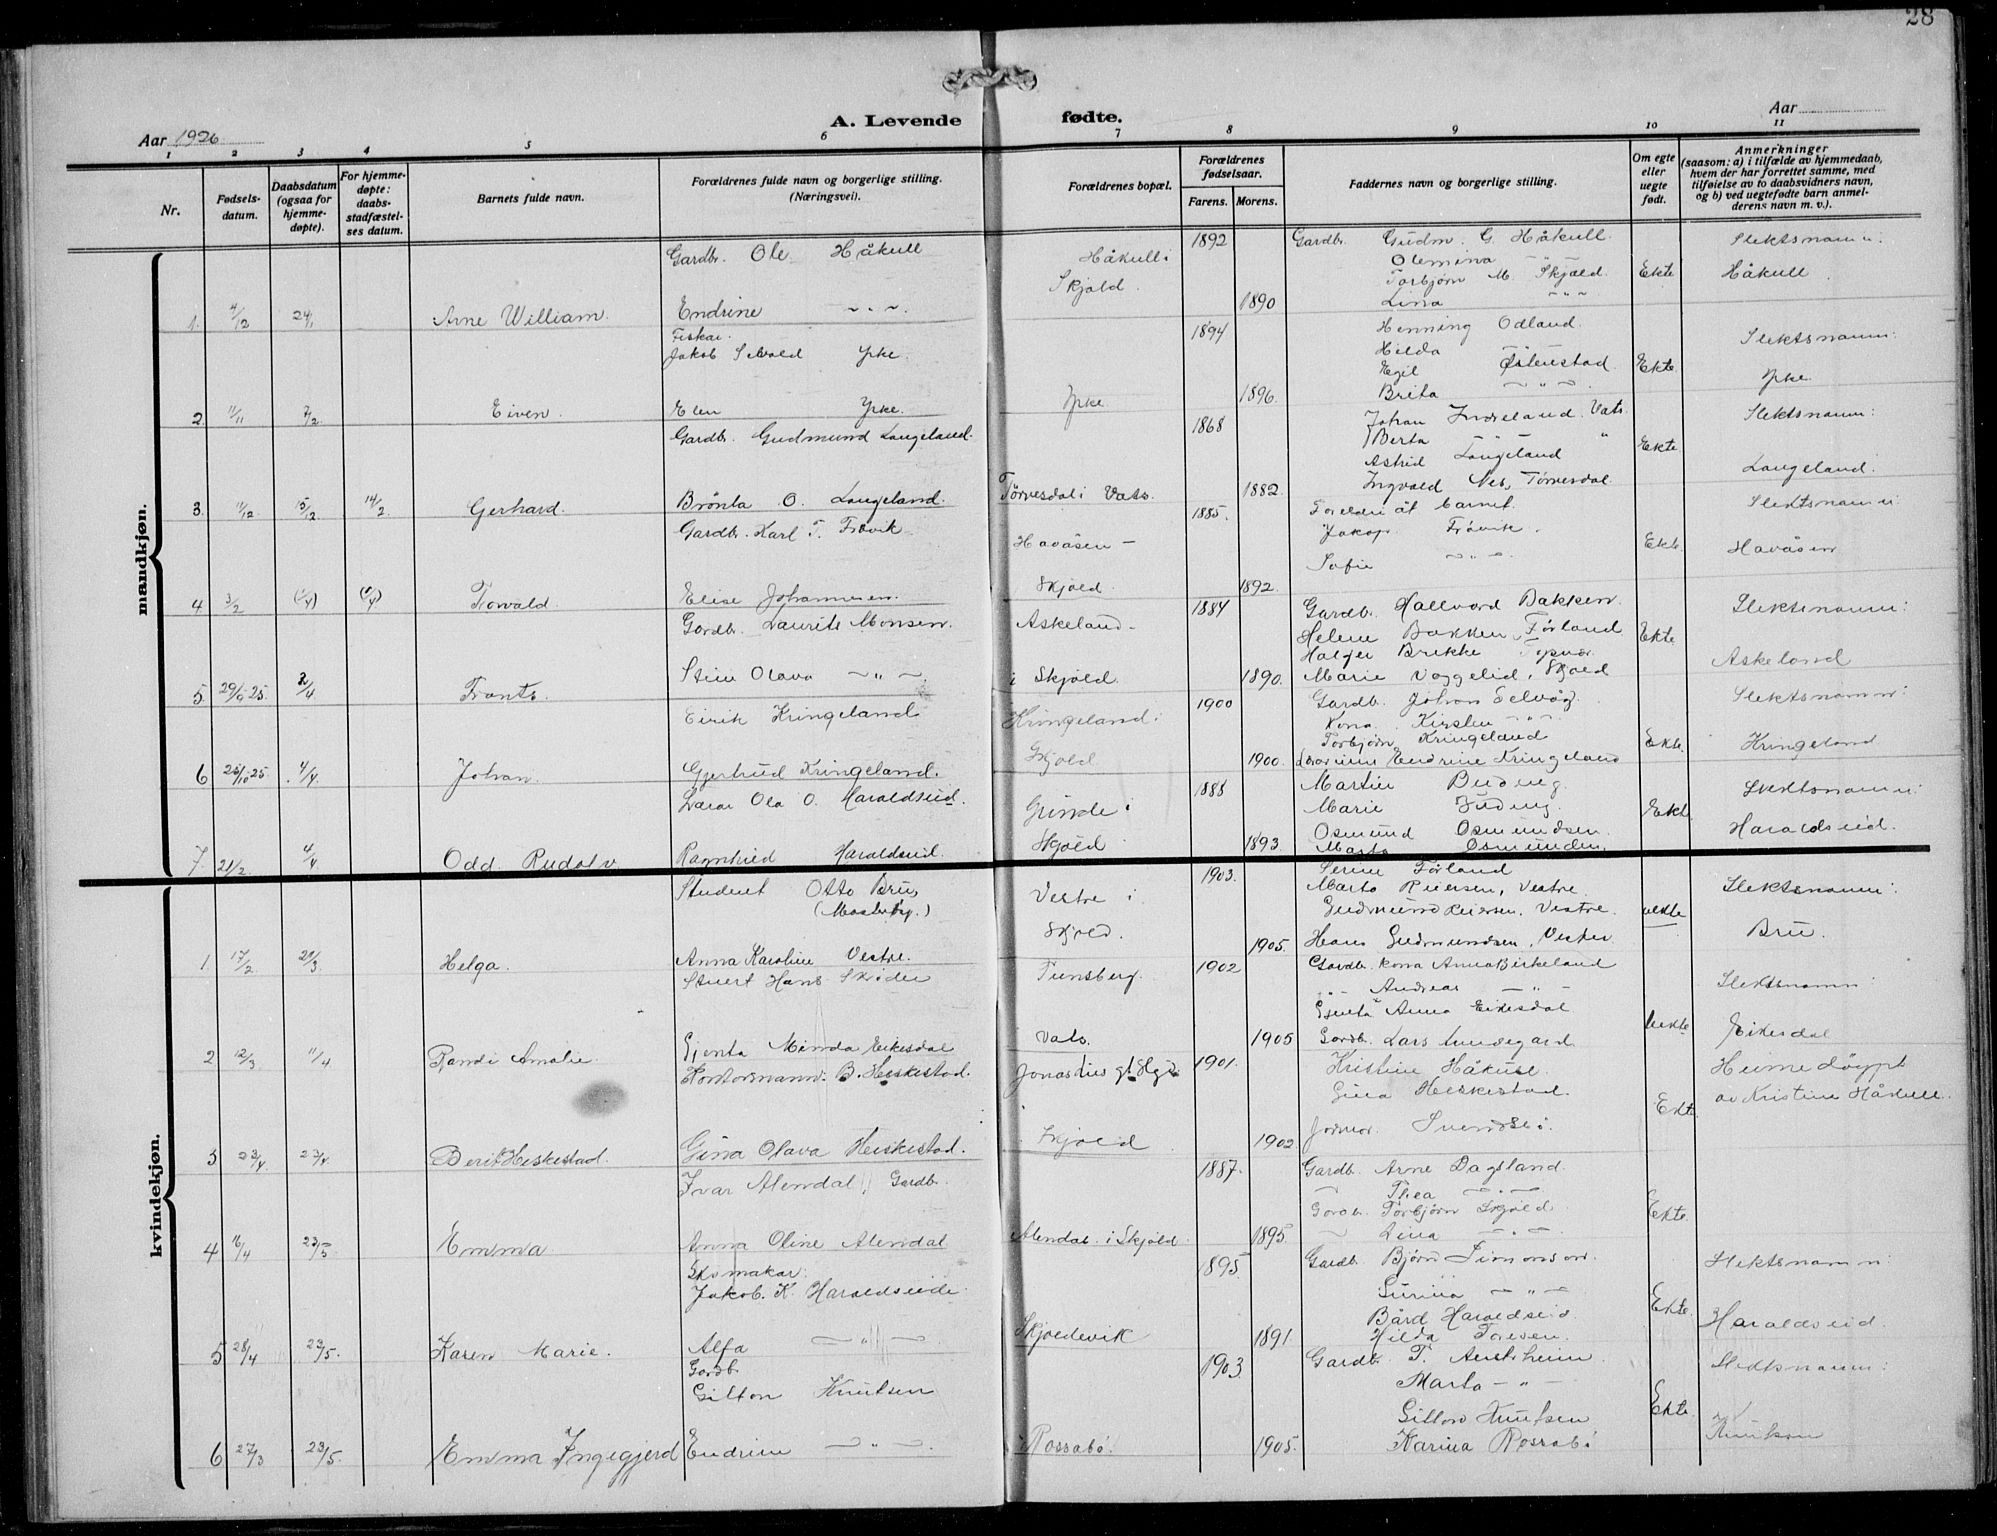 28
A. Levende fødte.
Aar 1926
Aar
1 2 3 4 5 6 7 8 9 10 11
Nr.
Fødsels-
datum.
Daabsdatum
(ogsaa for
hjemme-
døpte).
For hjemme-
døpte:
daabs-
stadfæstel-
ses datum.
Barnets fulde navn.
Forældrenes fulde navn og borgerlige stilling.
(Næringsvei).
Forældrenes bopæl.
Forældrenes
fødselsaar.
Farens. Morens.
Faddernes navn og borgerlige stilling.
Om egte
eller
uegte
født.
Anmerkninger
(saasom: a) i tilfælde av hjemmedaab,
hvem der har forrettet samme, med
tilføielse av to daabsvidners navn,
og b) ved uegtefødte barn anmel-
derens navn m. v.).
mandkjøn.
1. 4/12 24/1 Arne William.
Gardbr. Ole Håkull
Endrine " "
Håkull i
Skjold.
1892
1890
Gardbr. Gudm. G. Håkull.
Olemina "
Torbjørn M. Skjold.
Lina " "
Ekte
Slektsnamn:
Håkull
2 11/11 7/2 Eiven.
Fiskar.
Jakob Sevald Ypke.
Elen Ypke.
Ypke.
1894
1896.
Henning Odland.
Hilda "
Egil Østenstad
Brita "
Ekte
Slektsnamn:
Ypke.
3. 11/12 15/12 14/2 Gerhard.
Gardbr. Gudmund Langeland.
Brønla O. Langeland.
Tørvesdal i Vats.
1868
1882.
Johan Indreland. Vats.
Berta " "
Astrid Langeland
Ingvald Nes, Tørvesdal.
Ekte
Slektsnamn:
Langeland.
4 3/2 (5/4) (5/4) Torvald.
Gardbr. Karl T. Frøvik
Elise Johannesen.
Havåsen -
Skjold.
1885.
1892.
Foreldri åt barnet.
Jakop Frøvik.
Sofie "
Ekte.
Slektsnamn:
Havåsen
5 29/10 25. 2/4 Frants.
Gardb. Laurits Monsen.
Stine Olava "
Askeland -
i Skjold.
1884
1890.
Gardb. Hallvard Bakken.
Helene Bakken, Førland
Holger Brekke
Marie Vaggelid, Skjold
Ekte
Slektsnamn:
Askeland
6 25/10 25. 4/4 Johan.
Eirik Kringeland
Gjertrud Kringeland.
Kringeland i
Skjold
1900
1900.
Gardb. Johan Selvåg.
Kona Kirsten "
Torbjørn Kringeland
Endrine Kringeland
Ekte.
Slektsnamn:
Kringeland
7. 21/2. 4/4 Odd Rudolv
Lærar Ola O. Haraldseid.
Ragnhild Haraldseid.
Grinde i
Skjold
1888
1893.
Martin Buding
Marie Buding.
Osmund Osmundsen.
Marta Osmundsen.
Ekte
Slektsnamn:
Haraldseid.
kvindekjøn.
1. 17/2. 21/3. Helga.
Student Otto Bru,
Anna Karoline Vestre.
Vestre i
Skjold.
1903.
1905.
Serine Førland
Marta Reiersen, Vestre.
Gudmund Reiersen. Vestre.
Hans Gudmundsen, Vestre
uekte
Slektsnamn:
Bru.
2 12/3 11/4 Randi Amalie.
Stuert Hans Skröder
Gjenta Minda Eikesdal
Tunsberg.
Vats.
1902
1905
Gardb. kona Anna Birkeland
" Andreas "
Gjenta Anna Eikesdal
Gardb. Lars Lundegard.
Uekte
Slektsnamn
Eikesdal
3 23/4. 23/4. Berit Heskestad.
Kontormann. B. Heskestad.
Gina Olava Heskestad.
Skjold
1901.
1902
Kristine Håkull
Gina Heskestad.
Jormor. Svendsbø.
Ekte
Heimedöypt
av Kristine Håkull.
4 16/4 23/5 Emma
Ivar Alendal, Gardbr.
Anna Oline Alendal
Alendal i Skjold.
1887.
1895.
Gardb. Arne Dagsland.
Thea "
Gardb. Torbjørn Skjold.
Lina "
Ekte.
5 28/4 23/5. Karen Marie.
Skomakar.
Jakob. K. Haraldseide.
Alfa "
Skjoldevik
1895.
1891.
Gardb. Bjørn Simonson.
Surina "
Bård Haraldseid
Hilda Toresen.
Ekte.
Slektsnamn:
Haraldseid.
6 27/3 23/5. Emma Ingegjerd
Gardb.
Gitton Knutsen
Endrine "
i Rossabø.
1903.
1905.
Gardb. T. Austrheim.
Marta "
Gitton Knutsen
Karina Rossabø
Ekte
Slektsnamn:
Knutson